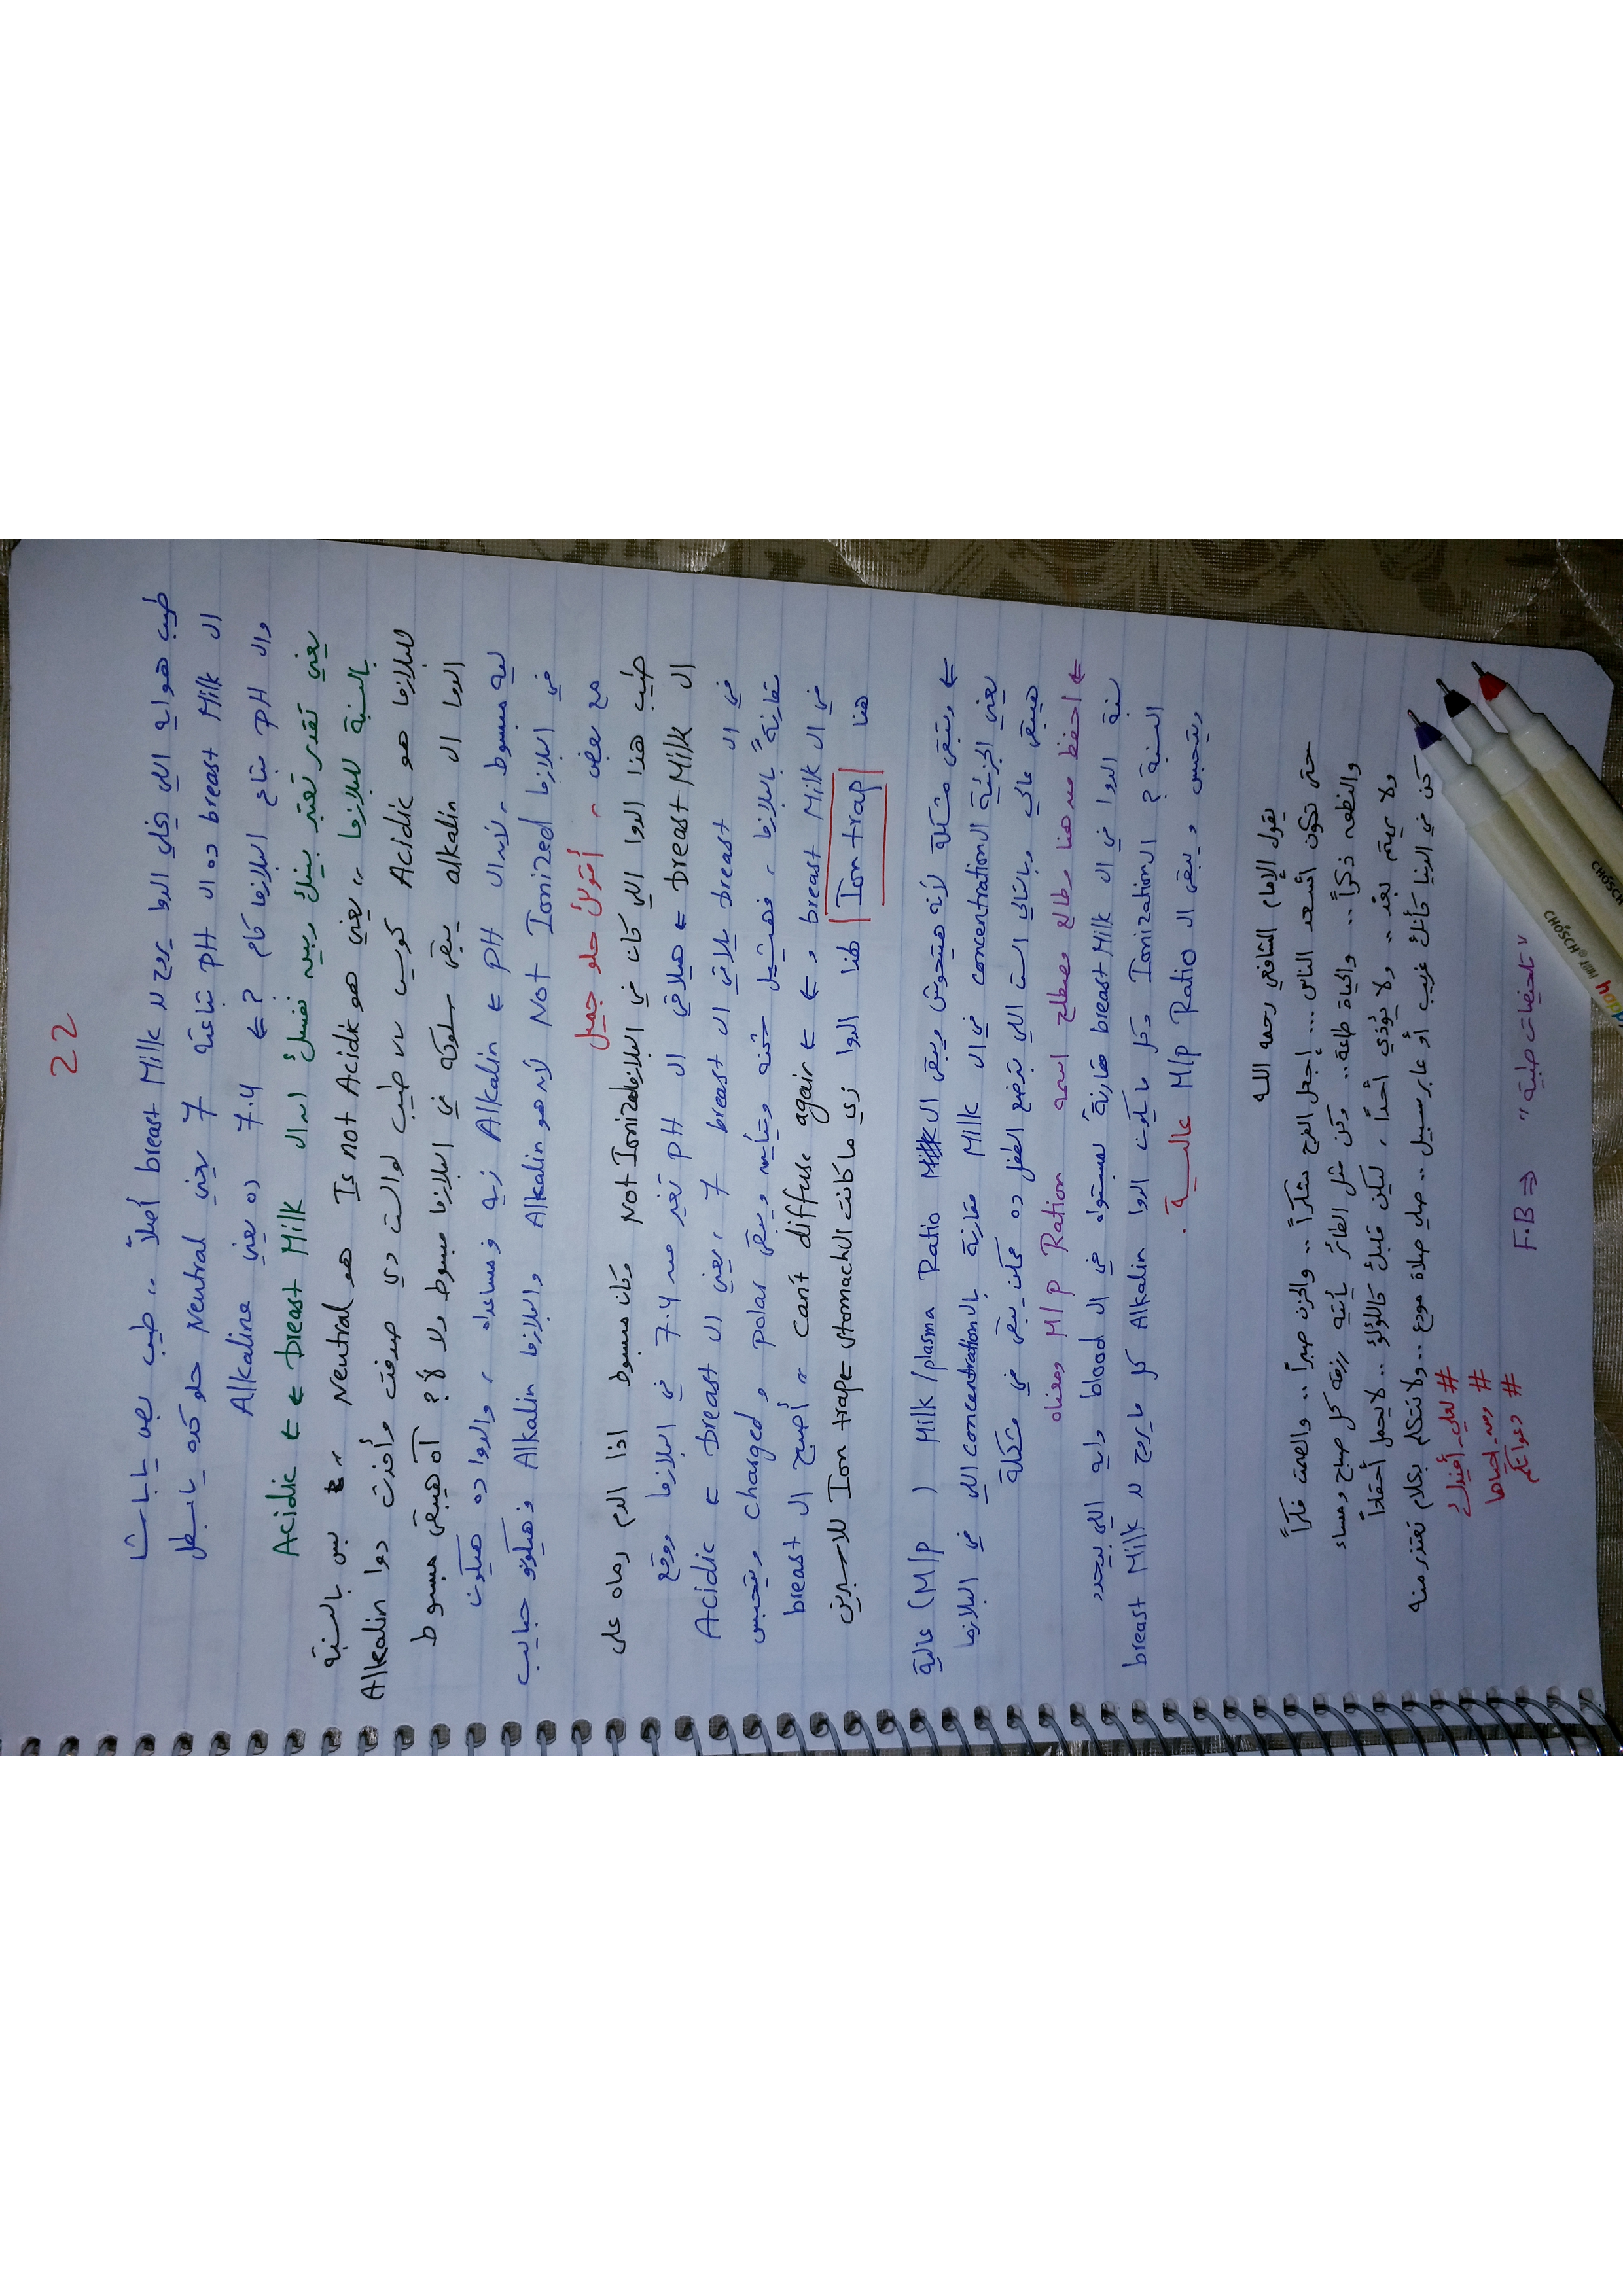 22
طيب هو ايه اللي يخلي الدوا يروح لل breast Milk أصلاً .. طيب بص يا باشا
ال breast Milk ده ال pH بتاعته 7 يعني Neutral حلو كده يا بطل
وال pH بتاع البلازما كام ? ⇐ 7.4 ده يعني Alkaline
يعني تقدر تعتبر بينك وبين نفسك ان ال breast Milk ⇐ ⇐ Acidic
بالنسبة للبلازما ,, يعني هو Is not Acidic هو Neutral ,, بس بالنسبة
للبلازما هو Acidic كويس ,, طيب لو الست دي صدفت وأخدت دوا Alkalin
الدوا ال alkalin يبقى سلوكه في البلازما مبسوط ولا لأ؟ آه هيبقى مبسوط
ليه مبسوط ، لأن ال pH ⇐ Alkalin زيه ومساعداه ، والدوا ده هيكون
في البلازما Not Ionized لأن هو Alkalin والبلازما Alkalin فهيكونو حبايب
مع بعض ، أقولك حلو جميل
طيب هذا الدوا اللي كان في البلازما Not Ionized وكان مبسوط اذا الدم رماه على
ال breast Milk ⇐ هيلاقي ال pH تغير من 7.4 في البلازما ووقع
في ال breast يلاقي ال breast 7 ، يعني ال breast ⇐ Acidic
مقارنةً بالبلازما ، فهيشيل شحنه ويتأين ويبقى polar و charged ويتحبس
في ال breast Milk و ⇐ ⇐ can't diffuse again ,, أصبح ال breast
هنا Ion trap لهذا الدوا زي ما كانت ال stomach ⇐ Ion trap للاسبرين
⇐ وتبقى مشكلة لأنه هيتحوش ويبقى ال Milk/plasma Ratio ( M/P) عالية
يعني الجزئية ال concentration في ال Milk مقارنة بال concentration اللي في البلازما
هيبقى عالي وبالتالي الست اللي بترضع الطفل ده ممكن يبقى في مشكلة
⇐ احفظ من هنا رطالع مصطلح اسمه M/P Ration ومعناه
نسبة الدوا في ال breast Milk مقارنةً لمستواه في ال blood وايه اللي بيحدد
النسبة ? ال Ionization وكل مايكون الدوا Alkalin كل مايروح لل breast Milk
ويتحبس ويبقى ال M/P Ratio عاليــة .
يقول الإمام الشافعي رحمه الله
حتى تكون أسعد الناس ... إجعل الفرح شكراً .. والحزن صبراً .. والصمت فكراً
والنطق ذكراً .. والحياة طاعة .. وكن مثل الطائر يأتيه رزقه كل صباح ومساء
ولا يهتم بغد .. ولا يؤذي أحداً ، ليكن قلبك كاللؤلؤ .. لا يحمل أحقاداً
كن في الدنيا كأنك غريب أو عابر سبيل .. صلي صلاة مودع .. ولا تتكلم بكلام تعتذر منه
# ومن_احياها
# دعواتكم
F.B ⇒ " تلخيصات طبية "
CHOSCH
CHOSCH